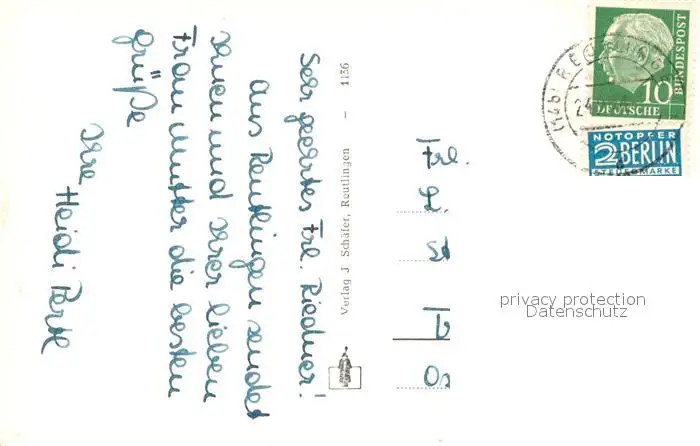 Sehr geehrtes Frl. Riedner!
Aus Reutlingen sendet
Ihnen und Ihrer lieben
Frau Mutter die besten
Grüße
Ihre Heidi
Verlag J Schäfer, Reutlingen - 1136
Frl.
L.
St
Os
DEUTSCHE
BUNDESPOST
10
NOTOPFER
2 BERLIN
STEUERMARKE
privacy protection
Datenschutz